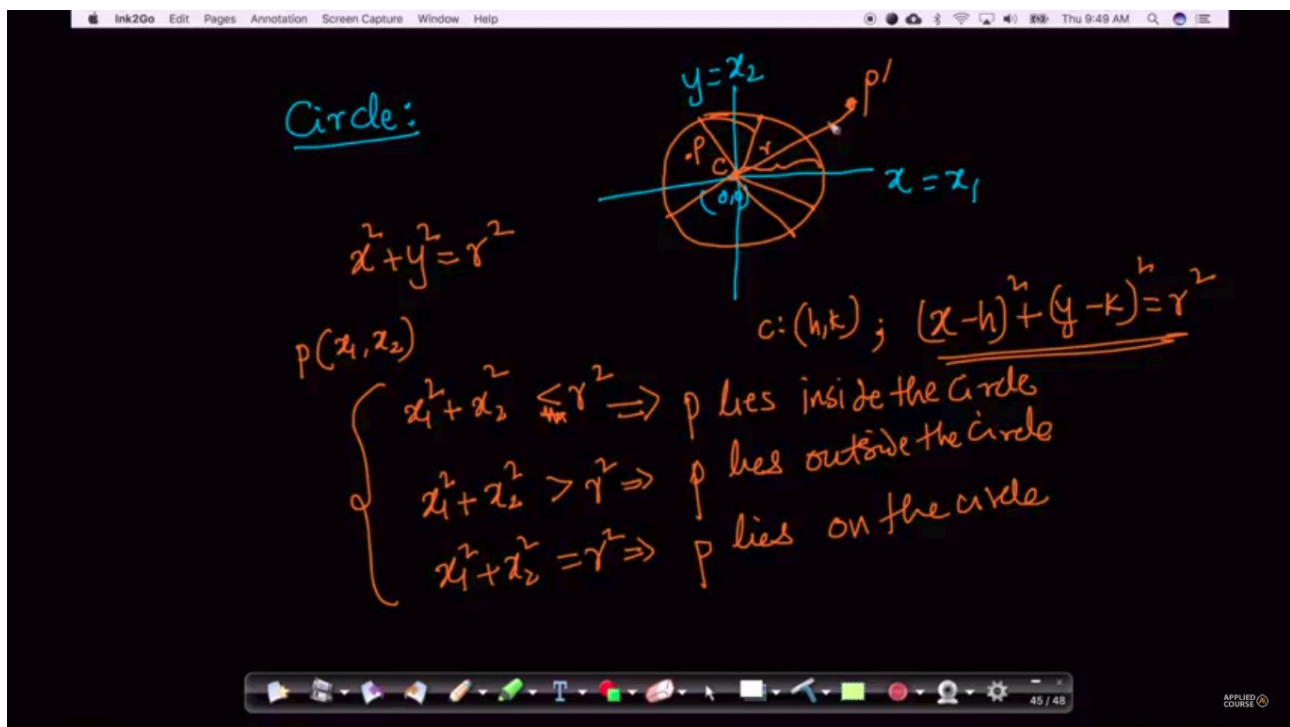 Ink2Go Edit Pages Annotation Screen Capture Window Help Thu 9:49 AM
Circle:
y = x₂
p'
.p
C
r
(0,0)
x = x₁
x² + y² = r²
c: (h,k) ; (x-h)² + (y-k)² = r²
p(x₁, x₂)
x₁² + x₂² < r² => p lies inside the circle
x₁² + x₂² > r² => p lies outside the circle
x₁² + x₂² = r² => p lies on the circle
T
45 / 48
APPLIED AI
COURSE